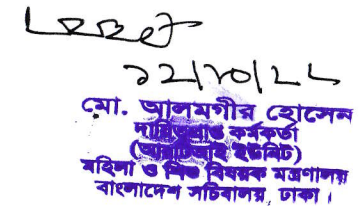 ১২/১০/২২
মো. আলমগীর হোসেন
দায়িত্বপ্রাপ্ত কর্মকর্তা
(আরটিআই ইউনিট)
মহিলা ও শিশু বিষয়ক মন্ত্রণালয়
বাংলাদেশ সচিবালয়, ঢাকা।